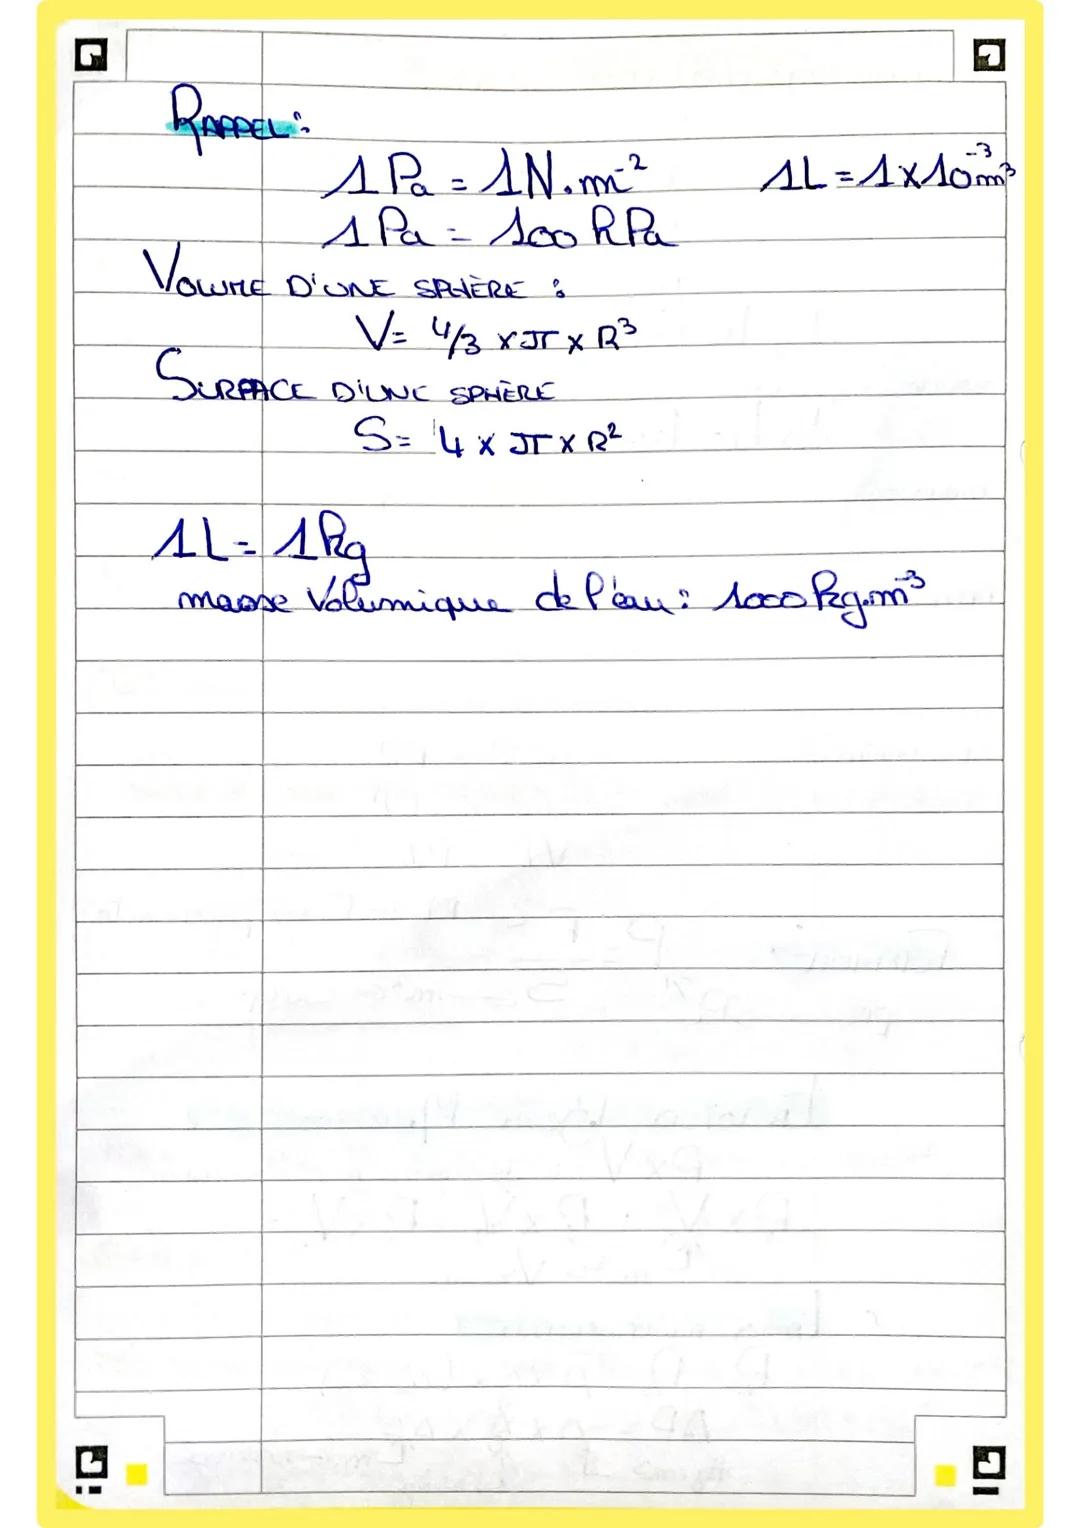 RAPPEL:
1 Pa = 1N.m⁻² 1L = 1x10⁻³m³
1 Pa = 100 hPa
VOLUME D'UNE SPHÈRE :
V= 4/3 x π x R³
SURFACE D'UNE SPHÈRE
S= 4 x π x R²
1L = 1kg
masse volumique de l'eau : 1000 kg.m⁻³